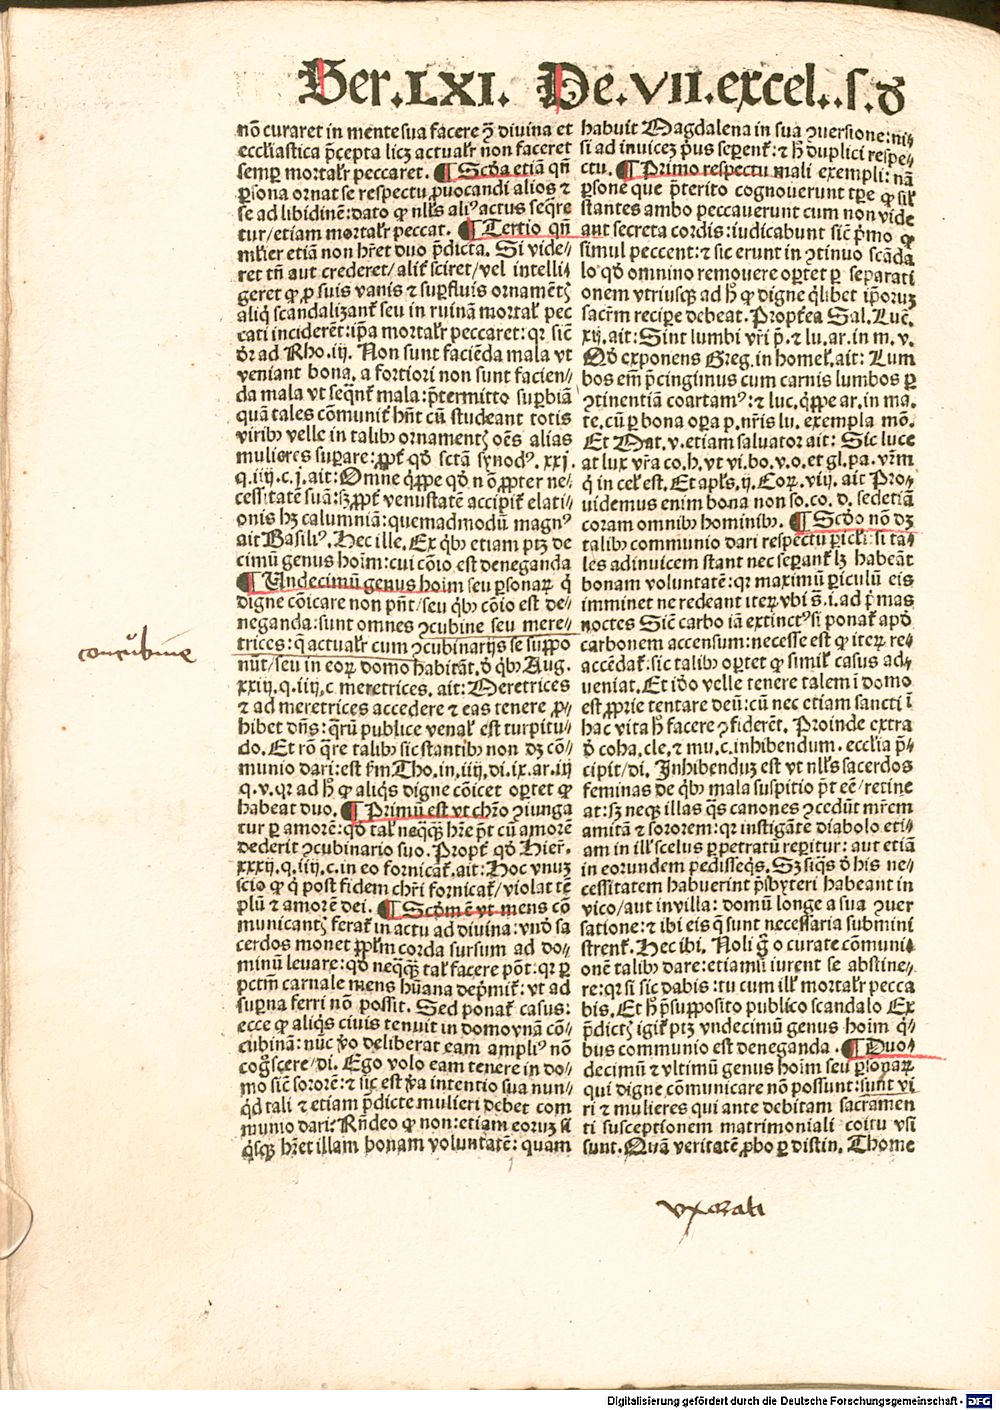 Ser. LXI. De. VII. excel.. s. d
nō curaret in mente sua facere ꝙ̄ diuina et
eccl̄iastica p̄cepta licꝫ actualr̄ non faceret
semꝑ mortalr̄ peccaret. ¶ Scd̓a etiā qn̄
ꝑsona ornat se respectu ꝓuocandi alios ⁊
se ad libidinē: dato ꝙ nll̓s aliꝰ actus seq̄re
tur/ etiam mortalr̄ peccat. ¶ Tertio qn̄
ml̓ier etiā non hr̄et duo p̄dicta. Si vide⸗
ret tn̄ aut crederet/ alit̓ sciret/ vel intelli⸗
geret ꝙ ꝑ suis vanis ⁊ suꝑfluis ornamētꝭ
aliq̄ scandalizant̓ seu in ruinā mortal̓ pec
cati inciderēt: ip̄a mortalr̄ peccaret: qꝛ sic̄
d̓r ad Rho. iij. Non sunt faciēda mala vt
veniant bona. a fortiori non sunt facien⸗
da mala vt seq̄nt̓ mala: p̄termitto suꝑbiā
quā tales cōmunit̓ hn̄t cū studeant totis
viribꝰ velle in talibꝰ ornamentꝭ oēs alias
mulieres suꝑare: ꝓpt̓ qd̓ sctā synodꝰ. xxj.
q. iiij. c. j. ait: Omne q̄ꝑpe qd̓ nō ꝓpter ne⸗
cessitatē suā: sꝫ ꝓpt̓ venustatē accipit̓ elati⸗
onis hꝫ calumniā: quemadmodū magnꝰ
ait Basiliꝰ. Hec ille. Ex q̓bꝰ etiam ptꝫ de
cimū genus hoīm: cui cōio est deneganda
¶ Vndecimū genus hoim seu ꝑsonaꝝ q̄
digne cōicare non pn̄t/ seu q̓bꝰ cōio est de⸗
neganda: sunt omnes ꝯcubine seu mere⸗
trices: q̄ actualr̄ cum ꝯcubinarijs se suppo
nūt/ seu in eoꝝ domo habitāt. d̓ q̓bꝰ Aug.
xxiij. q. iiij. c meretrices. ait: Meretrices
⁊ ad meretrices accedere ⁊ eas tenere ꝓ⸗
hibet dn̄s: q̄rū publice venal̓ est turpitu⸗
do. Et rō q̄re talibꝰ sic stantibꝰ non dꝫ cō⸗
munio dari: est fm̄ Tho. in. iiij. di. ix. ar. iij
q. v. qꝛ ad h̓ ꝙ aliq̓s digne cōicet oꝑtet ꝙ
habeat duo. ¶ Primū est vt chr̄o ꝯiunga
tur ꝑ amorē: qd̓ tal̓ neq̄qꝫ hr̄e p̄t cū amorē
dederit ꝯcubinario suo. Propt̓ qd̓ Hier̄.
xxxij. q. iiij. c. in eo fornicat̓. ait: Hoc vnuꝫ
scio ꝙ q̓ post fidem chr̄i fornicat̓/ violat tē
plū ⁊ amorē dei. ¶ Scd̓m ē vt mens cō
municantꝭ ferat̓ in actu ad diuina: vnd̓ sa
cerdos monet ꝓpl̓m corda sursum ad do⸗
minū leuare: qd̓ neq̄qꝫ tal̓ facere pōt: qꝛ ꝑ
pctm̄ carnale mens hūana dep̄mit̓: vt ad
suꝑna ferri nō possit. Sed ponat̓ casus:
ecce ꝙ aliq̓s ciuis tenuit in domo vnā cō⸗
cubinā: nūc v̓o deliberat eam ampliꝰ nō
cog̓scere/ di. Ego volo eam tenere in do⸗
mo sic̄ sororē: ⁊ sic est v̓a intentio sua nun⸗
q̓d tali ⁊ etiam p̄dicte mulieri debet com
munio dari? Rn̄deo ꝙ non: etiam eoruꝫ si
q̓sqꝫ hr̄et illam bonam voluntatē: quam
habuit Magdalena in sua ꝯuersione: ni⸗
si ad inuicē pͥus seꝑent̓: ⁊ h̓ duplici respe⸗
ctu. ¶ Primo respectu mali exempli: nā
ꝑsone que p̄terito cognouerunt tꝑe ꝙ sil̓
stantes ambo peccauerunt cum non vide
ant secreta cordis: iudicabunt sic̄ pͥmo ꝙ
simul peccent: ⁊ sic erunt in ꝯtinuo scāda
lo qd̓ omnino remouere oꝑtet ꝑ separati
onem vtriusqꝫ ad h̓ ꝙ digne q̓libet ip̄oruꝫ
sacrm̄ recipe debeat. Propt̓ea Sal. Luc̄.
xij. ait: Sint lumbi vr̄i p̄. ⁊ lu. ar. in m. v.
Qd̓ exponens Greg. in homel̓. ait: Lum
bos em̄ p̄cingimus cum carnis lumbos ꝑ
ꝯtinentiā coartamꝰ: ⁊ luc. q̄ꝑpe ar. in ma.
te. cū ꝑ bona oꝑa p. nr̄is lu. exempla mō.
Et Mat. v. etiam saluator ait: Sic luce
at lux vr̄a co. h. vt vi. bo. v. o. et gl. pa. vr̄m
q̓ in cel̓ est. Et apl̓s. ij. Coꝝ. viij. ait Pro⸗
uidemus enim bona non so. co. d. sed etiā
coram omnibꝰ hominibꝰ. ¶ Scd̓o nō dꝫ
talibꝰ communio dari respectu ꝑicl̓i: si ta⸗
les adinuicem stant nec seꝑant̓ lꝫ habeāt
bonam voluntatē: qꝛ maximū ꝑiculū eis
imminet ne redeant iteꝝ vbi s̄. i. ad pͥmas
noctes Sic̄ carbo iā extinctꝰ si ponat̓ apd̓
carbonem accensum: necesse est ꝙ iteꝝ re⸗
accēdat̓: sic talibꝰ oꝑtet ꝙ simil̓ casus ad⸗
ueniat. Et id̓o velle tenere talem ī domo
est ꝓprie tentare deū: cū nec etiam sancti ī
hac vita h̓ facere ꝯfiderēt. Proinde extra
d̓ coha. cle. ⁊ mu. c. inhibendum. eccl̄ia p̄⸗
cipit/ di. Inhibenduꝫ est vt nll̓s sacerdos
feminas de q̓bꝰ mala suspitio p̄t eē/ retine
at: sꝫ neqꝫ illas q̄s canones ꝯcedūt mr̄em
amitā ⁊ sororem: qꝛ instigāte diabolo eti⸗
am in ill̓ scelus ꝑpetratū reꝑitur: aut etiā
in eorundem pedisseq̄s. Sꝫ siq̓s d̓ his ne⸗
cessitatem habuerint p̄sbyteri habeant in
vico/ aut in villa: domū longe a sua ꝯuer
satione: ⁊ ibi eis q̄ sunt necessaria submini
strent̓. Hec ibi. Noli g̓ o curate cōmuni⸗
onē talibꝰ dare: etiamsi iurent se abstine⸗
re: qꝛ si sic dabis: tu cum ill̓ mortalr̄ pecca
bis. Et h̓ p̄supposito publico scandalo Ex
p̄dictꝭ igit̓ ptꝫ vndecimū genus hoim q̓⸗
bus communio est deneganda. ¶ Duo⸗
decimū ⁊ vltimū genus hoim seu ꝑsonaꝝ
qui digne cōmunicare nō possunt: sunt vi
ri ⁊ mulieres qui ante debitam sacramen
ti susceptionem matrimoniali coitu vsi
sunt. Quā veritatē ꝓbo ꝑ distin. Thome
concubine
vxorati
Digitalisierung gefördert durch die Deutsche Forschungsgemeinschaft - DFG